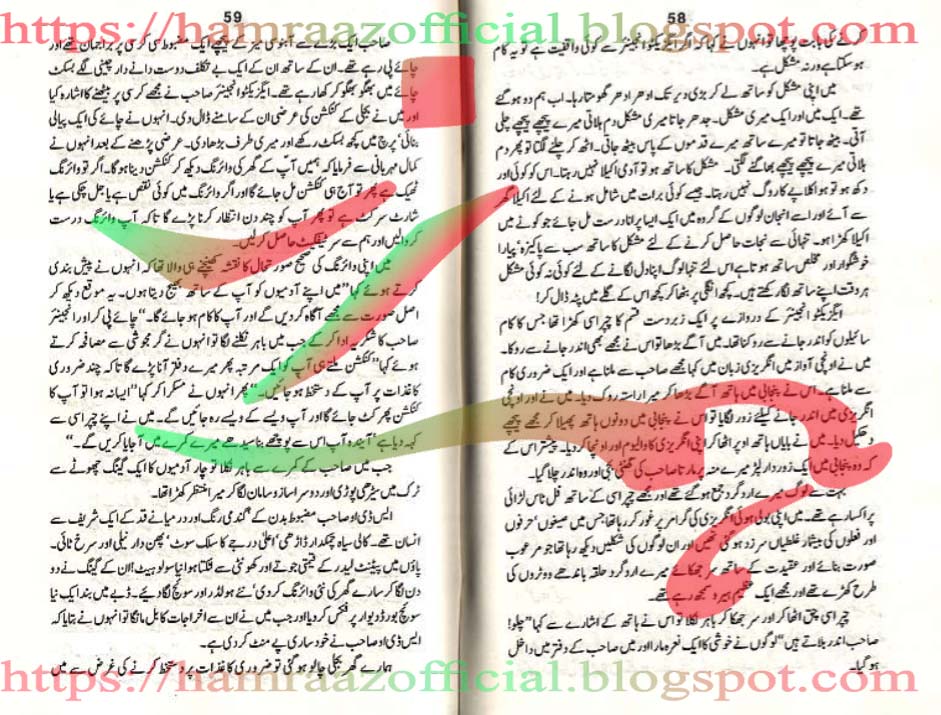 https://hamraazofficial.blogspot.com
58
کرنے کی بابت پوچھا تو انہوں نے کہا کہ اگر ایگزیکٹو انجینئر سے کوئی واقفیت ہے تو یہ کام
ہو سکتا ہے ورنہ مشکل ہے۔
میں اپنی مشکل کو ساتھ لے کر بڑی دیر تک ادھر ادھر گھومتا رہا۔ اب ہم دو ہو گئے
تھے۔ ایک میں اور ایک میری مشکل۔ جدھر جاتا میری مشکل دم ہلاتی میرے پیچھے پیچھے چلی
آتی۔ بیٹھ جاتا تو میرے ساتھ میرے قدموں کے پاس بیٹھ جاتی۔ اٹھ کر چلنے لگتا تو پھر دم
ہلاتی میرے پیچھے پیچھے بھاگنے لگتی۔ مشکل کا ساتھ ہو تو آدمی اکیلا نہیں رہتا۔ اس کو کوئی اور
دکھ ہو تو ہو اکلاپے کا روگ نہیں رہتا۔ جیسے کوئی برات میں شامل ہونے کے لئے اکیلا گھر
سے آئے اور اسے انجان لوگوں کے گروہ میں ایک ایسا پرانا دوست مل جائے جو کونے میں
اکیلا کھڑا ہو۔ تنہائی سے نجات حاصل کرنے کے لئے مشکل کا ساتھ سب سے پاکیزہ، پیارا
خوشگوار اور مخلص ساتھ ہوتا ہے اس لئے تنہا لوگ اپنا دل لگانے کے لئے کوئی نہ کوئی مشکل
ہر وقت اپنے ساتھ لگا کر رکھتے ہیں۔ کچھ انگلی پر بٹھا کر کچھ اس کے گلے میں پٹہ ڈال کر!
ایگزیکٹو انجینئر کے دروازے پر ایک زبردست قسم کا چپراسی کھڑا تھا جس کا کام
سائیلوں کو اندر جانے سے روکنا تھا۔ میں آگے بڑھا تو اس نے مجھے بھی اندر جانے سے روکا۔
میں نے اونچی آواز میں انگریزی زبان میں کہا مجھے صاحب سے ملنا ہے اور ایک ضروری کام
سے ملنا ہے۔ اس نے پنجابی میں ہاتھ آگے بڑھا کر میرا راستہ روک دیا۔ میں نے اور اونچی
انگریزی میں اندر جانے کیلئے زور لگایا تو اس نے پنجابی میں دونوں ہاتھ پھیلا کر مجھے پیچھے
دھکیل دیا۔ میں نے بایاں ہاتھ اوپر اٹھا کر اپنی انگریزی کا والیوم اور اونچا کر دیا۔ پیشتر اس کے
کہ وہ پنجابی میں ایک زوردار لپڑ میرے منہ پر مارتا صاحب کی گھنٹی بجی اور وہ اندر چلا گیا۔
بہت سے لوگ میرے ارد گرد جمع ہو گئے تھے اور مجھے چپراسی کے ساتھ فل ناس لڑائی
پر اکسا رہے تھے۔ میں اپنی بولی ہوئی انگریزی کی گرامر پر غور کر رہا تھا جس میں صیغوں، حرفوں
اور فعلوں کی بیشمار غلطیاں سرزد ہو گئی تھیں اور ان لوگوں کی شکلیں دیکھ رہا تھا جو مرعوب
صورت بنائے اور عقیدت کے ساتھ سر جھکائے میرے ارد گرد حلقہ باندھے ووٹروں کی
طرح کھڑے تھے اور مجھے ایک عظیم ہیرو سمجھ رہے تھے۔
چپراسی چق اٹھا کر اور سر جھکا کر باہر نکلا تو اس نے ہاتھ کے اشارے سے کہا ”چلو!
صاحب اندر بلاتے ہیں“ لوگوں نے خوشی کا ایک نعرہ مارا اور میں صاحب کے دفتر میں داخل
ہو گیا۔
59
صاحب ایک بڑے سے آبنوسی میز کے پیچھے ایک مضبوط سی کرسی پر براجمان تھے اور
چائے پی رہے تھے۔ ان کے ساتھ ان کے ایک بے تکلف دوست دانے دار چینی لگے بسکٹ
چائے میں بھگو بھگو کر کھا رہے تھے۔ ایگزیکٹو انجینئر صاحب نے مجھے کرسی پر بیٹھنے کا اشارہ کیا
اور میں نے بجلی کے کنکشن کی عرضی ان کے سامنے ڈال دی۔ انہوں نے چائے کی ایک پیالی
بنائی، پرچ میں کچھ بسکٹ رکھے اور میری طرف بڑھا دی۔ عرضی پڑھنے کے بعد انہوں نے
کمال مہربانی سے فرمایا کہ ہمیں آپ کے گھر کی وائرنگ دیکھ کر کنکشن دینا ہوگا۔ اگر تو وائرنگ
ٹھیک ہے پھر تو آج ہی کنکشن مل جائے گا اور اگر وائرنگ میں کوئی نقص ہے یا جل چکی ہے یا
شارٹ سرکٹ ہے تو پھر آپ کو چند دن انتظار کرنا پڑے گا تاکہ آپ وائرنگ درست
کروالیں اور ہم سے سرٹیفکیٹ حاصل کرلیں۔
میں اپنی وائرنگ کی صحیح صورتحال کا نقشہ کھینچنے ہی والا تھا کہ انہوں نے پیش بندی
کرتے ہوئے کہا ”میں اپنے آدمیوں کو آپ کے ساتھ بھیج دیتا ہوں۔ یہ موقع دیکھ کر
اصل صورت سے مجھے آگاہ کر دیں گے اور آپ کا کام ہو جائے گا۔“ چائے پی کر اور انجینئر
صاحب کا شکریہ ادا کر کے جب میں باہر نکلنے لگا تو انہوں نے گرمجوشی سے مصافحہ کرتے
ہوئے کہا ”کنکشن ملتے ہی آپ کو ایک مرتبہ پھر میرے دفتر آنا پڑے گا تاکہ چند ضروری
کاغذات پر آپ کے دستخط ہو جائیں۔“ پھر انہوں نے مسکرا کر کہا ”ایسا نہ ہوا تو آپ کا
کنکشن پھر کٹ جائے گا اور آپ ویسے کے ویسے رہ جائیں گے۔ میں نے اپنے چپراسی سے
کہہ دیا ہے ”آیندہ آپ اس سے پوچھے بنا سیدھے میرے کمرے میں آ جایا کریں گے۔“
جب میں صاحب کے کمرے سے باہر نکلا تو چار آدمیوں کا ایک گینگ چھوٹے سے
ٹرک میں سیڑھی پوڑی اور دوسرا ساز و سامان لگا کر میرا منتظر کھڑا تھا۔
ایس ڈی او صاحب مضبوط بدن کے، گندمی رنگ اور درمیانے قد کے ایک شریف سے
انسان تھے۔ کالی سیاہ چمکدار ڈاڑھی، اعلیٰ درجے کا سلک سوٹ، پھن دار نیلی اور سرخ ٹائی۔
پاؤں میں پیٹنٹ لیدر کے قیمتی جوتے اور کھونٹی سے لٹکتا ہوا نیا سولو ہیٹ! ان کے گینگ نے دو
دن لگا کر سارے گھر کی نئی وائرنگ کر دی، نئے ہولڈر اور سوئچ لگا دیئے۔ ڈبے میں بند ایک نیا
سوئچ بورڈ دیوار پر فکس کر دیا اور جب میں نے ان سے اخراجات کا بل مانگا تو انہوں نے بتایا کہ
ایس ڈی او صاحب نے خود ساری پے منٹ کر دی ہے۔
ہمارے گھر بجلی چالو ہو گئی تو ضروری کاغذات پر دستخط کرنے کی غرض سے میں
https://hamraazofficial.blogspot.com